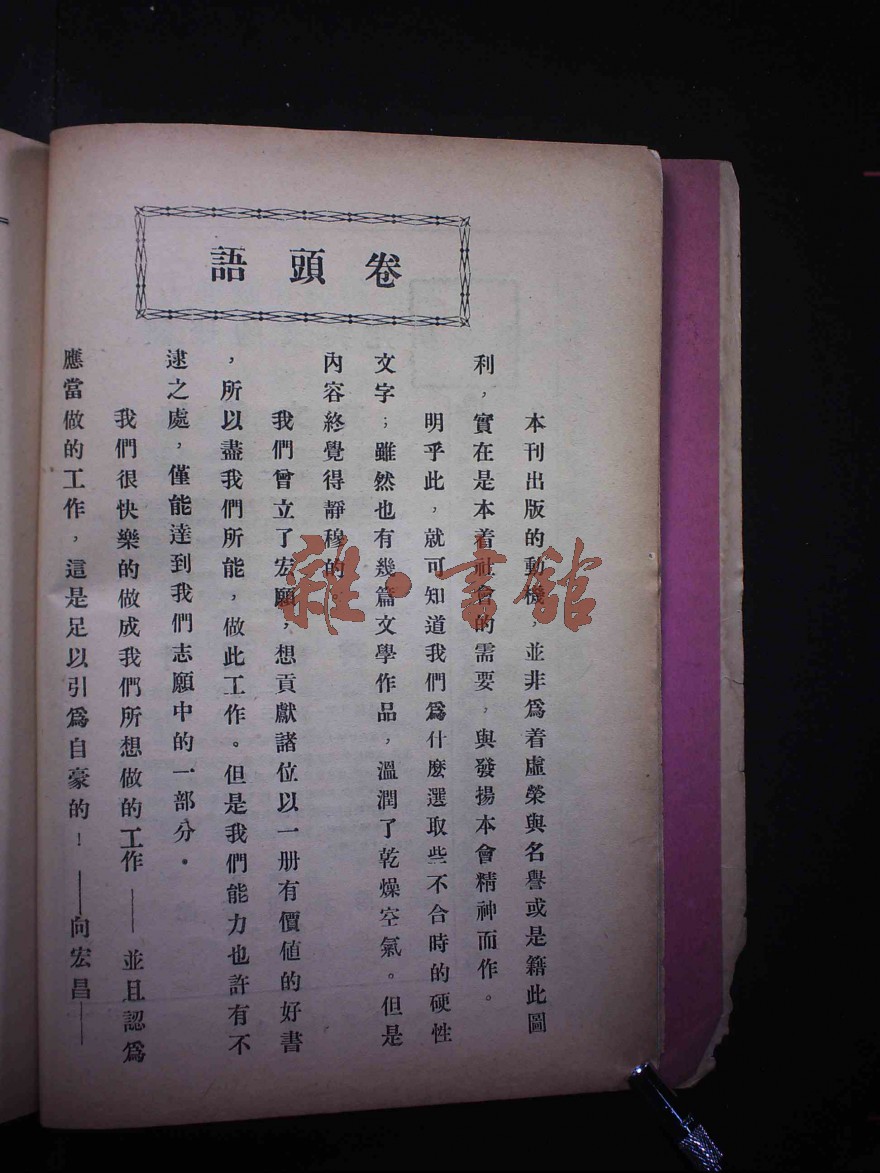 卷頭語
本刊出版的動機　並非爲着虛榮與名譽或是籍此圖
利，實在是本着社會的需要，與發揚本會精神而作。
明乎此，就可知道我們爲什麼選取些不合時的硬性
文字；雖然也有幾篇文學作品，溫潤了乾燥空氣。但是
內容終覺得靜穆的。
我們曾立了宏願，想貢獻諸位以一册有價値的好書
，所以盡我們所能，做此工作。但是我們能力也許有不
逮之處，僅能達到我們志願中的一部分。
我們很快樂的做成我們所想做的工作——並且認爲
應當做的工作，這是足以引爲自豪的！——向宏昌——
雜·書館